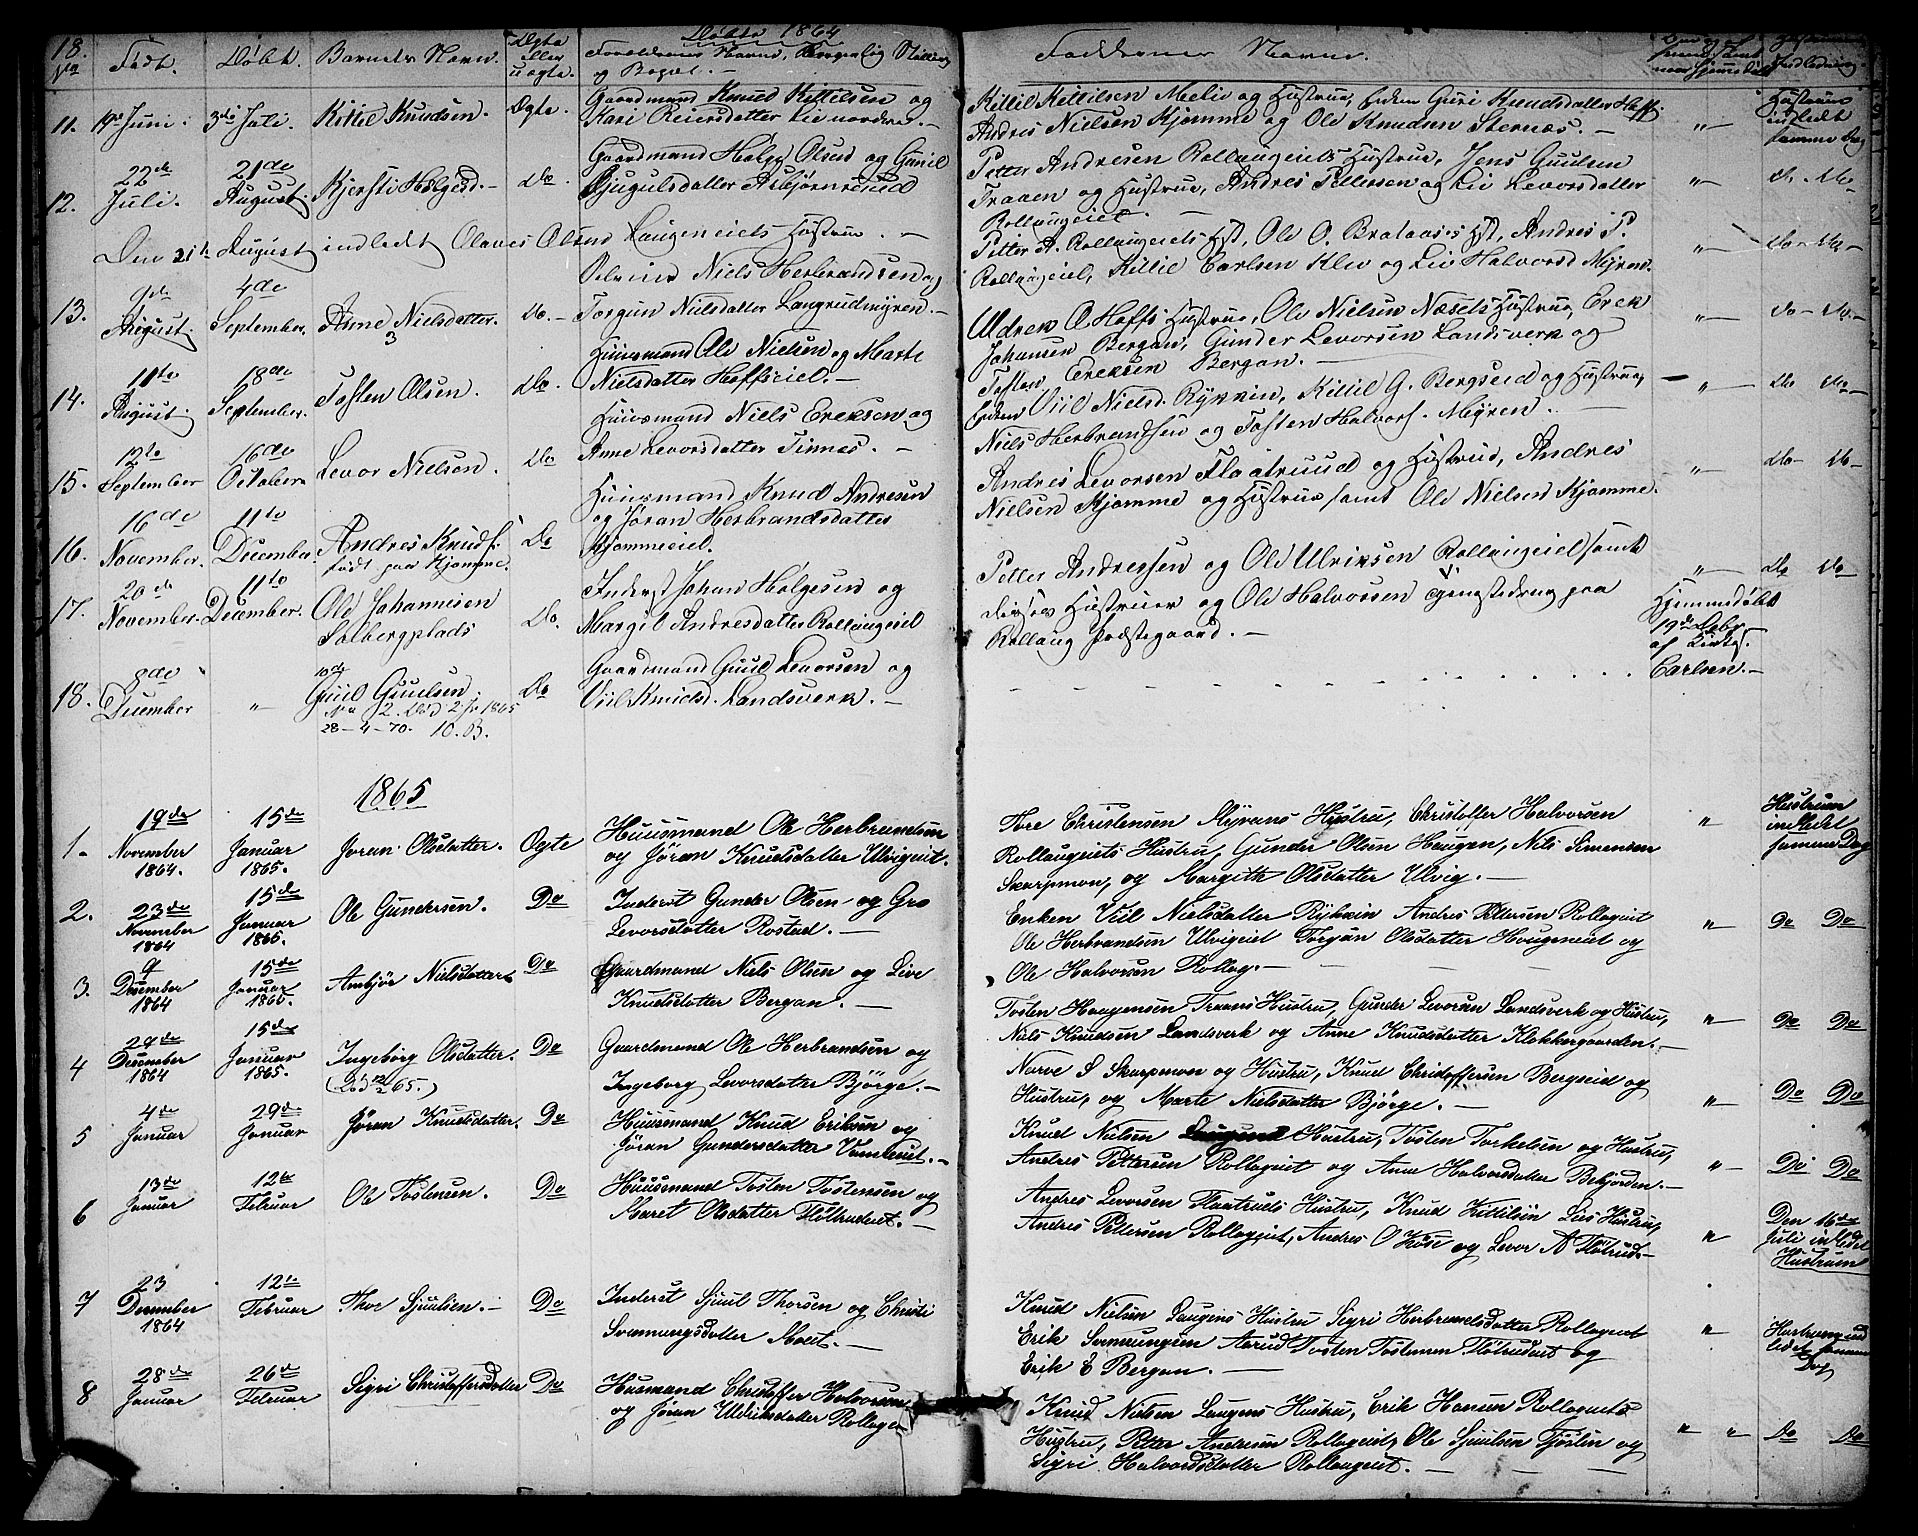 18.
Døbte 1864
No Født. Døbt. Barnets Navn. Ægte eller uægte. Forældrenes Navne, Borgerlig Stilling og Bopæl. — Faddernes Navne.
11. Juni. 3die Juli. Kittil Knudsen. Ægte.
Gaardmand Knud Kittelsen og
Kari Reiersdatter Lie nordre. —
Kittil Kittilsen Meli og Hustrue, Enken Guri Knudsdatter Hoff.
Andres Nielsen Kjomme og Ole Knudsen Sternæs. —
Hustrue
indledt
samme Dag
12. 22de Juli. 21de August. Kjersti Helgesd. — do.
Gaardmand Helge Olsen og Guniel
Gjugulsdatter Asbjørnrud
Petter Andresen Rollaugeiets Hustrue, Jens Guulsen
Traaen og Hustrue, Andres Pettersen og Liv Levorsdatter
Rollaugeiet. —
" — do — do —
Den 21de August indledt Olaves Olsens Laugeneiets Hustrue. —
Petter A. Rollaugeiets Hst, Ole O. Brataases Hst, Andres P.
Rollaugeiet, Kittil Carlsen Klev og Liv Halvorsd Myren.
" — do — do —
13. August. 4de September. Anne Nielsdatter. do. —
Niels Herbrandsen og
Torgun Nielsdatter Langrudmyren. —
Uldrek O Hoffs Hustrue, Ole Nielsen Næsets Hustrue, Erek
Johansen Bergan, Gunder Levorsen Landsverk og
Tosten Ereksen Bergan. —
" — do — do —
14. 11te August. 18de September. Tosten Olsen. do.
Huusmand Ole Nielsen og Marte
Nielsdatter Hoffseiet. —
Enken Viil Nielsd. Rykkin, Kittil G. Bergseid og Hustrue,
Niels Herbrandsen og Tosten Halvors. Myren. —
— " — do do —
15. 12te September 16de October Levor Nielsen. do
Huusmand Niels Ereksen og
Anne Levorsdatter Tinnes. —
Andres Levorsen Flaatruud og Hustrue, Andres
Nielsen Kjomme og Hustrue samt Ole Nielsen Kjomme.
" — do — do —
16. 16de November. 11te December. Andres Knuds.
født paa Kjomme. do
Huusmand Knud Andresen
og Jøran Herbrandsdatter
Kjommeeiet.
17. 20de November. 11te December. Ole Johannesen
Solbergplads do.
Inderst Johan Helgesen og
Margit Andresdatter Rollaugeiet
Petter Andressen og Ole Ulriksen Rollaugeiet samt
deres Hustruer og Ole Halvorsen tjenestedreng paa
Rollaug Præstegaard. —
" — do do —
18. 8de December " Guul Guulsen do
No 2. Død 2 Jr 1865
28—4—70. 10. B.
Gaardmand Guul Levorsen og
Viil Knudsd. Landsverk. —
Hjemmedøbt
19de Debr
af Kirkes.
Carlsen. —
1865
1. 19de November 1864. 15de Januar 1865. Jøran Olsdatter. Ægte
Huusmand Ole Herbrandsen
og Jøran Knudsdatter Ulvigeiet.
Tore Christensen Myrans Hustru, Christoffer Halvorsen
Rollaugeiets Hustru, Gunder Olsen Haugen, Nils Simensen
Skarpmon, og Margith Olsdatter Ulvig. —
" Hustruen
indledet
samme Dag
2. 23de November 1864 15de Januar 1865. Ole Gundersen. Do
Inderst Gunder Olsen og Gro
Levorsdatter Rostad. —
Enken Viil Nielsdatter Rykkin Andres Pettersen Rollageiet
Ole Herbrandsen Ulvigeiet Torgun Olsdatter Haugeneiet og
Ole Halvorsen Rollag. —
" Do Do
3. 9 December 1864 15de Januar 1865. Ambjør Nielsdatter Do
Gaardmand Niels Olsen og Live
Knudsdatter Bergan. —
Tosten Haagensen Traaens Hustru, Gunder Levorsen Landsverk og Hustru,
Niels Knudsen Landsverk og Anne Knudsdatter Klokkergaarden. —
" — Do Do
4 29de December 1864 15de Januar 1865. Ingeborg Olsdatter. Do
Gaardmand Ole Herbrandsen og
Ingeborg Levorsdatter Bjørge. —
Norve S Skarpmon og Hustru, Knud Christoffersen Bergseid og
Hustru, og Marte Nielsdatter Bjørge. —
" — Do Do
5 4de Januar 29de Januar Jøran Knudsdatter. Do
Huusmand Knud Eriksen og
Jøran Gundersdatter Vamleiet. —
Knud Nielsen Laugens Hustru, Tosten Torkelsen og Hustru,
Andres Pettersen Rollageiet og Anne Halvorsdatter Bekjorden. —
" — Do Do
6 13de Januar 12te Februar Ole Tostensen. Do
Huusmand Tosten Tostensen og
Maret Olsdatter Fløtrudeiet. —
Andres Levorsen Flaatruds Hustru, Knud Kittilsen Lies Hustru,
Andres Pettersen Rollageiet, Andres O Kose og Levor A Fløtrud. —
" Den 16de
Juli indledet
Hustruen
7 23 December 1864 12te Februar Thor Sjuulsen. — Do
Inderst Sjuul Thorsen og Christi
Svennungsdatter Moeiet. —
Knud Nielsen Laugens Hustru Sigri Herbrandsdatter Rollageiet
Erik Svennungsen Aarud Tosten Tostensen Fløtrudeiet og
Erik E Bergan. —
" Hustruen ind
ledet samme
Dag
8 28de Januar 26de Februar Sigri Christoffersdatter Do
Husmand Christoffer Halvorsen
og Jøran Uldriksdatter Rollage
Knud Nielsen Laugens Hustru, Erik Hansen Rollageiets
Hustru, Petter Andresen Rollageiet, Ole Sjuulsen Fjøslien og
Sigri Halvordsdatter Rollaugeiet. —
" " Do Do